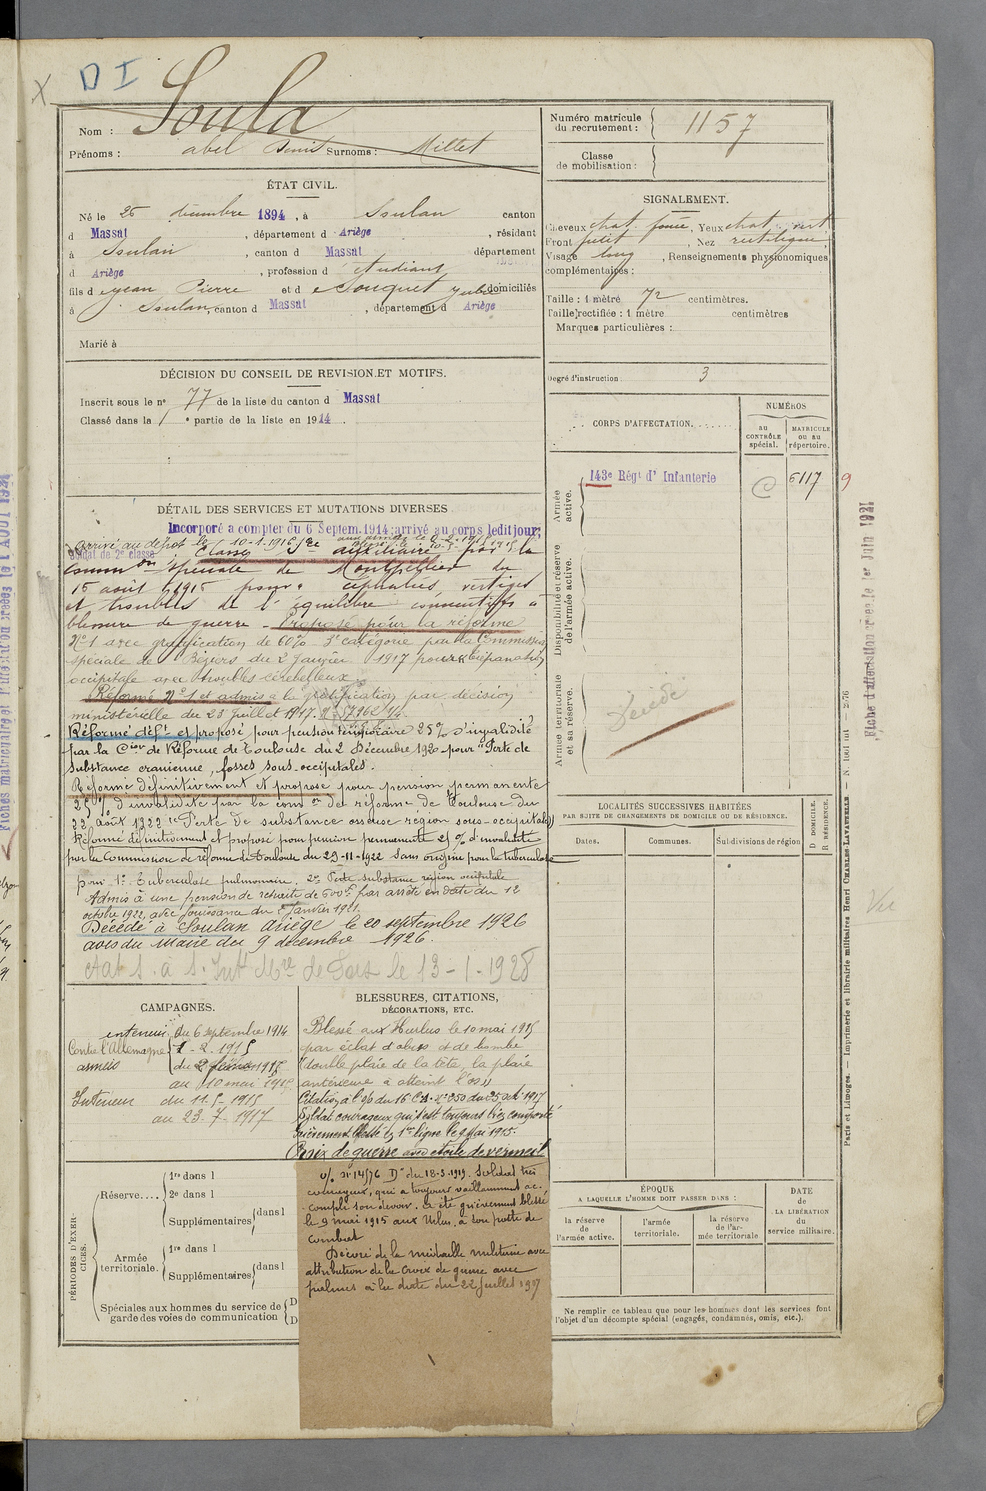 X D I
Nom : Soula
Prénoms : abel Denis Surnoms : Millet
Numéro matricule du recrutement : 1157
Classe de mobilisation :
ÉTAT CIVIL.
Né le 26 décembre 1894, à Soulan canton
d Massat, département d Ariège, résidant
à Soulan, canton d Massat département
d Ariège, profession d Étudiant
fils d Jean Pierre et d Souquet domiciliés
à Soulan, canton d Massat, département d Ariège
Marié à
SIGNALEMENT.
Cheveux chat. foncé, Yeux chat. vert
Front petit, Nez rectiligne,
Visage long, Renseignements physionomiques
complémentaires :
Taille : 1 mètre 72 centimètres.
Taille rectifiée : 1 mètre centimètres
Marques particulières :
Degré d'instruction : 3
DÉCISION DU CONSEIL DE REVISION ET MOTIFS.
Inscrit sous le n° 77 de la liste du canton d Massat
Classé dans la 1 e partie de la liste en 1914.
CORPS D'AFFECTATION.
NUMÉROS
AU CONTRÔLE spécial.
MATRICULE ou au répertoire.
Armée active.
143e Régt d' Infanterie
6117 9
Disponibilité et réserve de l'armée active.
Armée territoriale et sa réserve.
Décédé
DÉTAIL DES SERVICES ET MUTATIONS DIVERSES
Incorporé a compter du 6 Septem. 1914 : arrivé au corps ledit jour;
Arrivé au dépot le 10-1-1916
soldat de 2e classe
Classé Sce auxiliaire par la
Common spéciale de Montpellier du
15 août 1915 pour céphalées vertiges
et troubles de l'équilibre consécutifs à
blessure de guerre - Proposé pour la réforme
N°1 avec gratification de 60% 3e catégorie par la Commission
spéciale de Béziers du 2 Janvier 1917 pour trépanation
occipitale avec troubles cérébelleux
Réformé N°1 et admis à la gratification par décision
ministérielle du 23 Juillet 1917.
Réformé déft et proposé pour pension temporaire 25% d'invalidité
par la Cion de Réforme de Toulouse du 2 Décembre 1920 pour "Perte de
Substance cranienne, fosses sous-occipitales.
Réformé définitivement et proposé pour pension permanente
25% d'invalidité par la comon de réforme de Toulouse du
22 Août 1922 "Perte de substance osseuse région sous-occipitale"
Réformé définitivement et proposé pour pension permanente 25% d'invalidité
par la Commission de réforme de Toulouse du 29-11-1922 Sans origine pour la tuberculose
pour 1° Tuberculose pulmonaire. 2° Perte substance région occipitale
Admis à une pension de retraite de 600f par arrêté en date du 12
octobre 1922, avec jouissance du Janvier 1921.
Décédé à Soulan Ariège le 20 septembre 1926
avis du Maire du 9 décembre 1926.
le 13-1-1928
LOCALITÉS SUCCESSIVES HABITÉES
PAR SUITE DE CHANGEMENTS DE DOMICILE OU DE RÉSIDENCE.
Dates.
Communes.
Subdivisions de région
D DOMICILE.
R RÉSIDENCE.
CAMPAGNES.
intérieur du 6 septembre 1914
Contre l'Allemagne 1-2-1915
armées du 2 février 1915
au 10 mai 1915
Intérieur du 11-5-1915
au 23-7-1917
BLESSURES, CITATIONS,
DÉCORATIONS, ETC.
Blessé aux Hurlus le 10 mai 1915
par éclat d'obus et de bombe
(double plaie de la tête, la plaie
antérieure a atteint l'os))
Citation à l'
Soldat courageux qui s'est toujours bien comporté
Grièvement blessé en 1re ligne le 9 Mai 1915.
Croix de guerre avec étoile de vermeil
o/. n° 14576 D" du 18-3-1919. Soldat très
courageux, qui a toujours vaillamment ac-
compli son devoir. a été grièvement blessé
le 9 mai 1915 aux Urlus, à son poste de
combat
Décoré de la médaille militaire avec
attribution de la Croix de guerre avec
palmes à la date du 22 Juillet 1917
PÉRIODES D'EXERCICES.
Réserve....
1re dans l
2e dans l
Supplémentaires dans l
Armée territoriale.
1re dans l
Supplémentaires dans l
Spéciales aux hommes du service de
garde des voies de communication
ÉPOQUE
A LAQUELLE L'HOMME DOIT PASSER DANS :
la réserve de l'armée active.
l'armée territoriale.
la réserve de l'armée territoriale
DATE de LA LIBÉRATION du service militaire.
Ne remplir ce tableau que pour les hommes dont les services font
l'objet d'un décompte spécial (engagés, condamnés, omis, etc.).
Paris et Limoges. — Imprimerie et librairie militaires Henri CHARLES-LAVAUZELLE
Fiche d'affectation créée le 1er Juin 1921
Vu